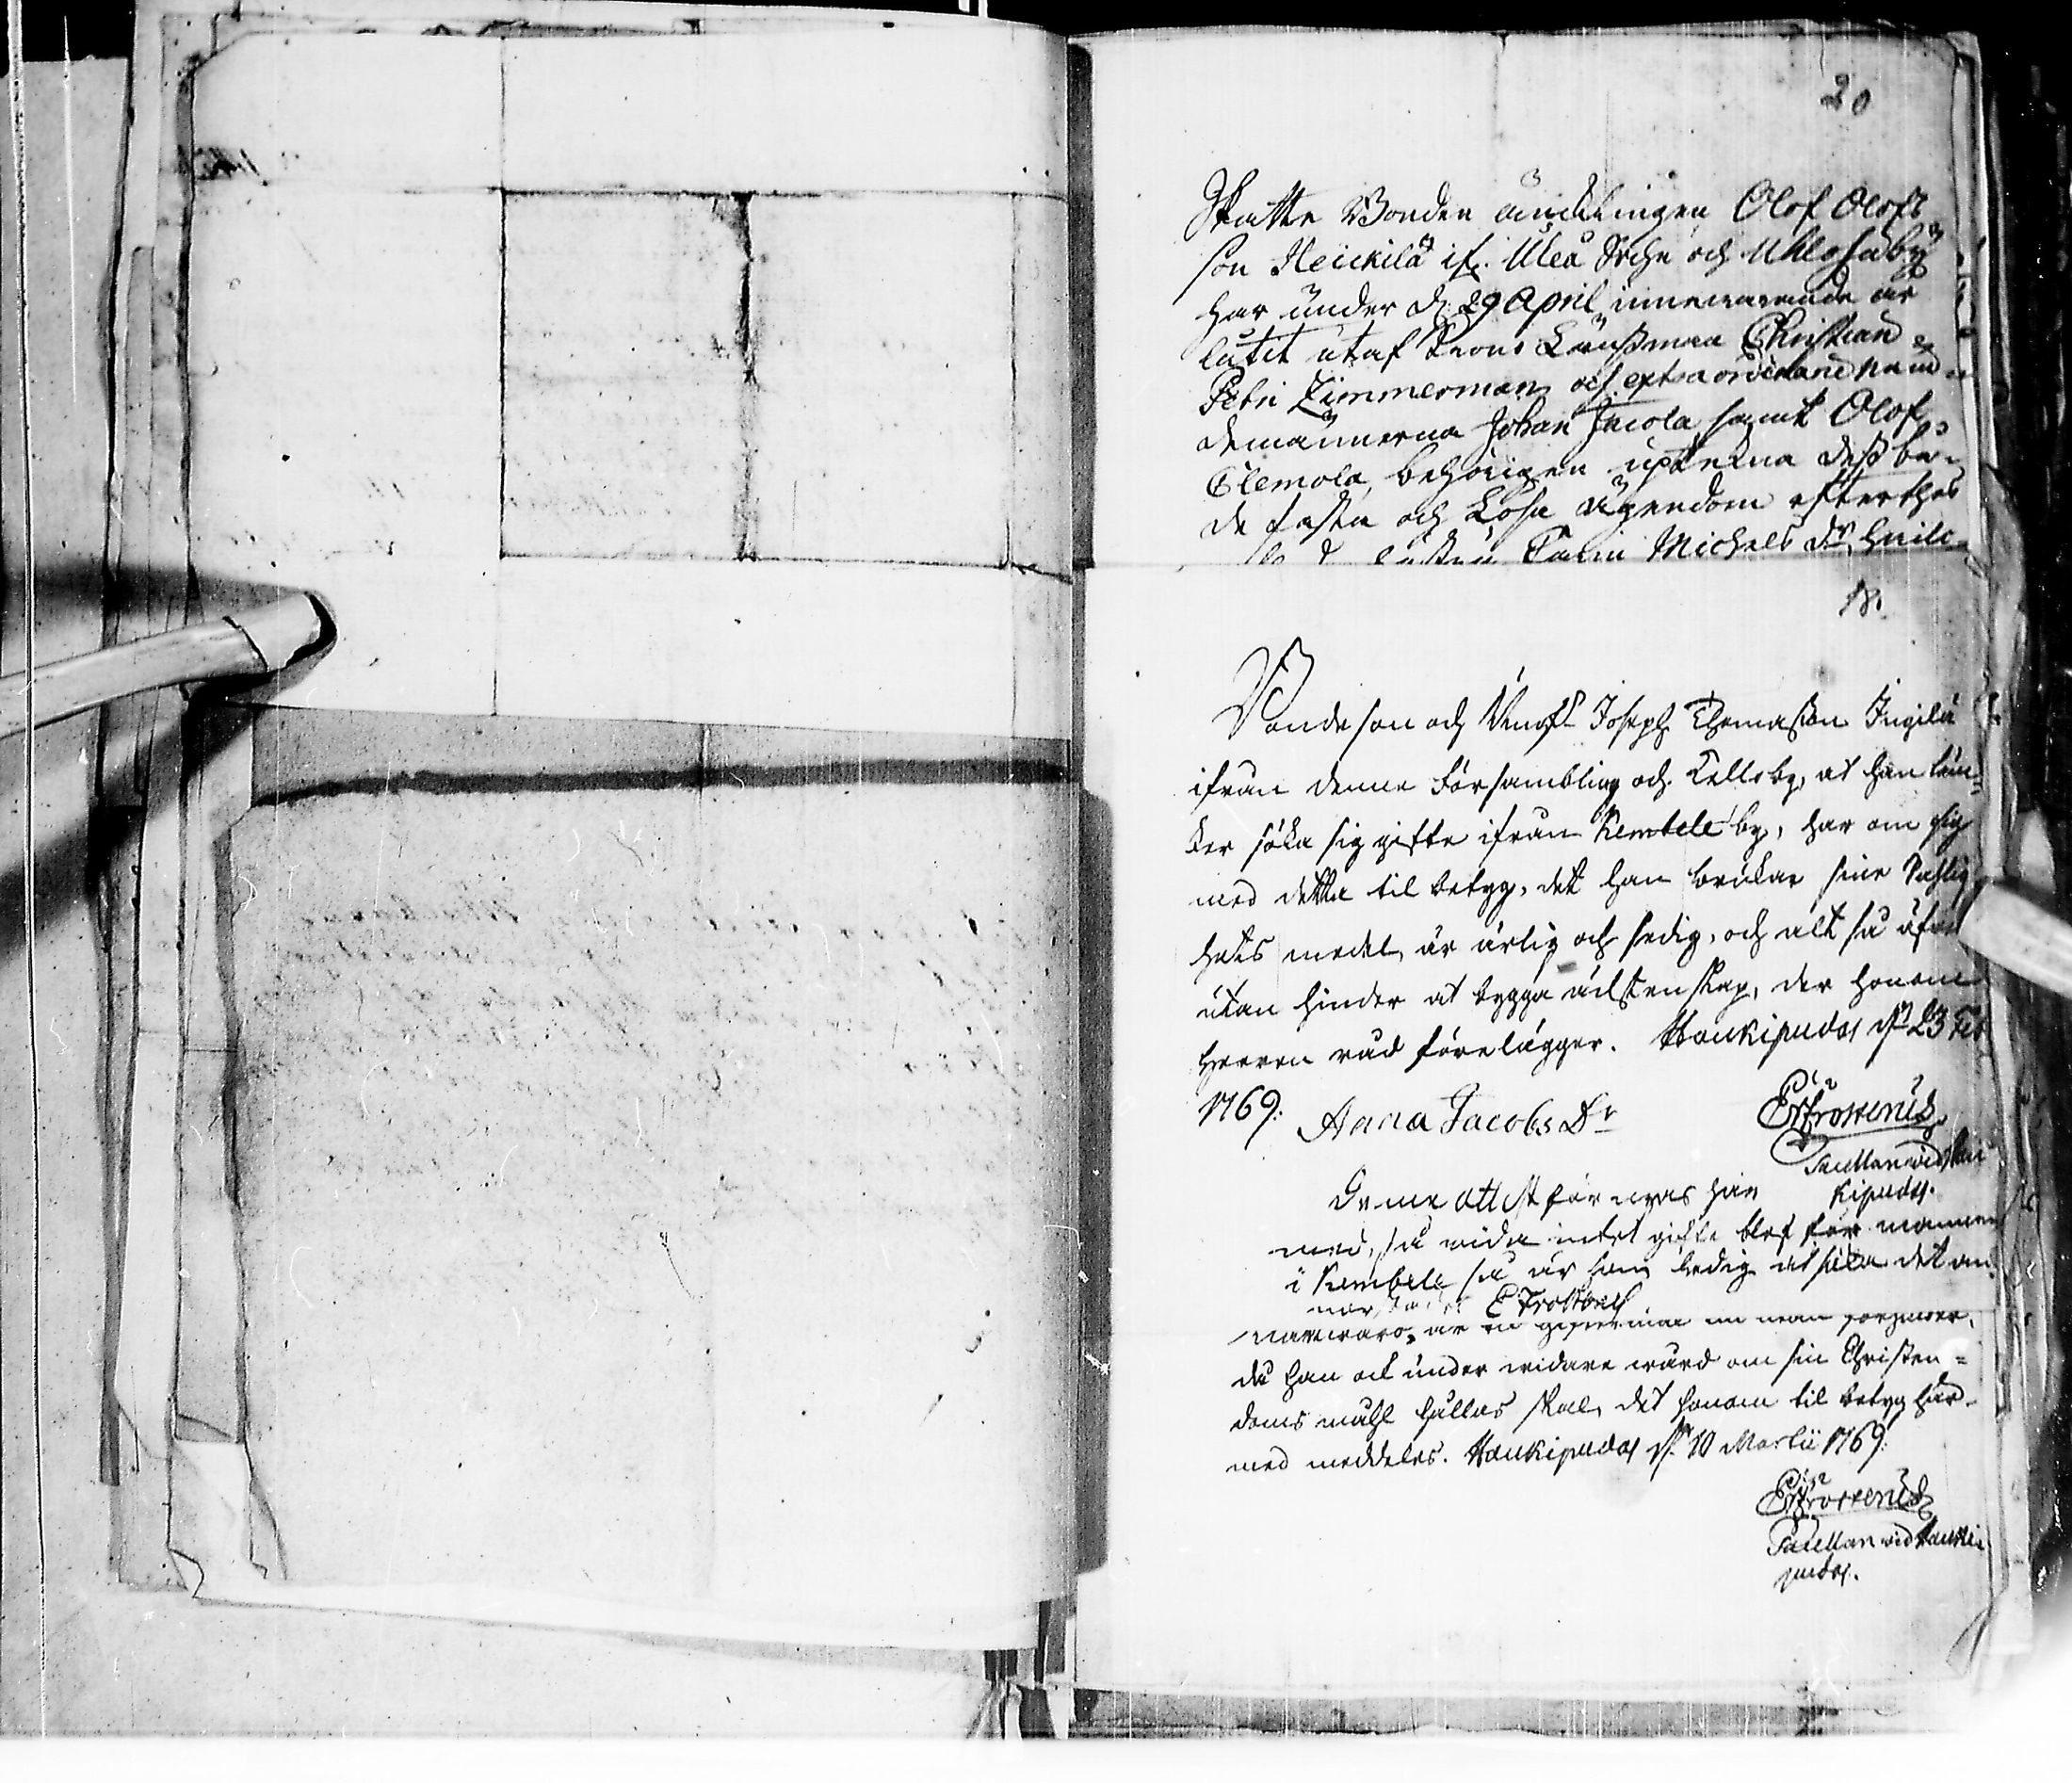 20
Skatte Bonden änckelingen Olof Olofs
son Heickilä if. Uleå Sokn och Uhlosaby
har under d. 29 April innewarande år
lutit utaf Krono Länßman Christian
Petri Zimmerman och extraordinarie Nämd
demännerna Johan Jacola samt Olof
Clemola, behörigen upteckna deß bå-
de fasta och Lösa ägendom efter thes
Carin Michels dr. hwilc
18.
Bondeson och Ungk. Joseph Thomasson Ingilä
ifrån denne Försambling och Kello by, at han tän-
ker söka sig gifte ifrån Kembele by, har om sig
med detta til betyg, det han brukar sine Sahlig
hets medel, är ärlig och sedig, och alt så äfwen
utan hinder at bygga ächtenskap, der honom
Herren råd förelägger. Haukipudas d. 23 Feb
1769:
Anna Jacobs Dr
E Frosterus
Sacellan wid Hau
kipudas.
Denne attest förnyas här
med, så wida intet gifte blef för mannen
i Kembele så är han ledig at söka det an
nor E Frosterus
narwaro, är en giftermåл
då han ock under widare wård om sin Christen=
doms måhl hållas skal, det honom til betyg här-
med meddeles. Haukipudas d. 10 Martii 1769:
E Frosterus
Sacellan wid Hauki
pudas.